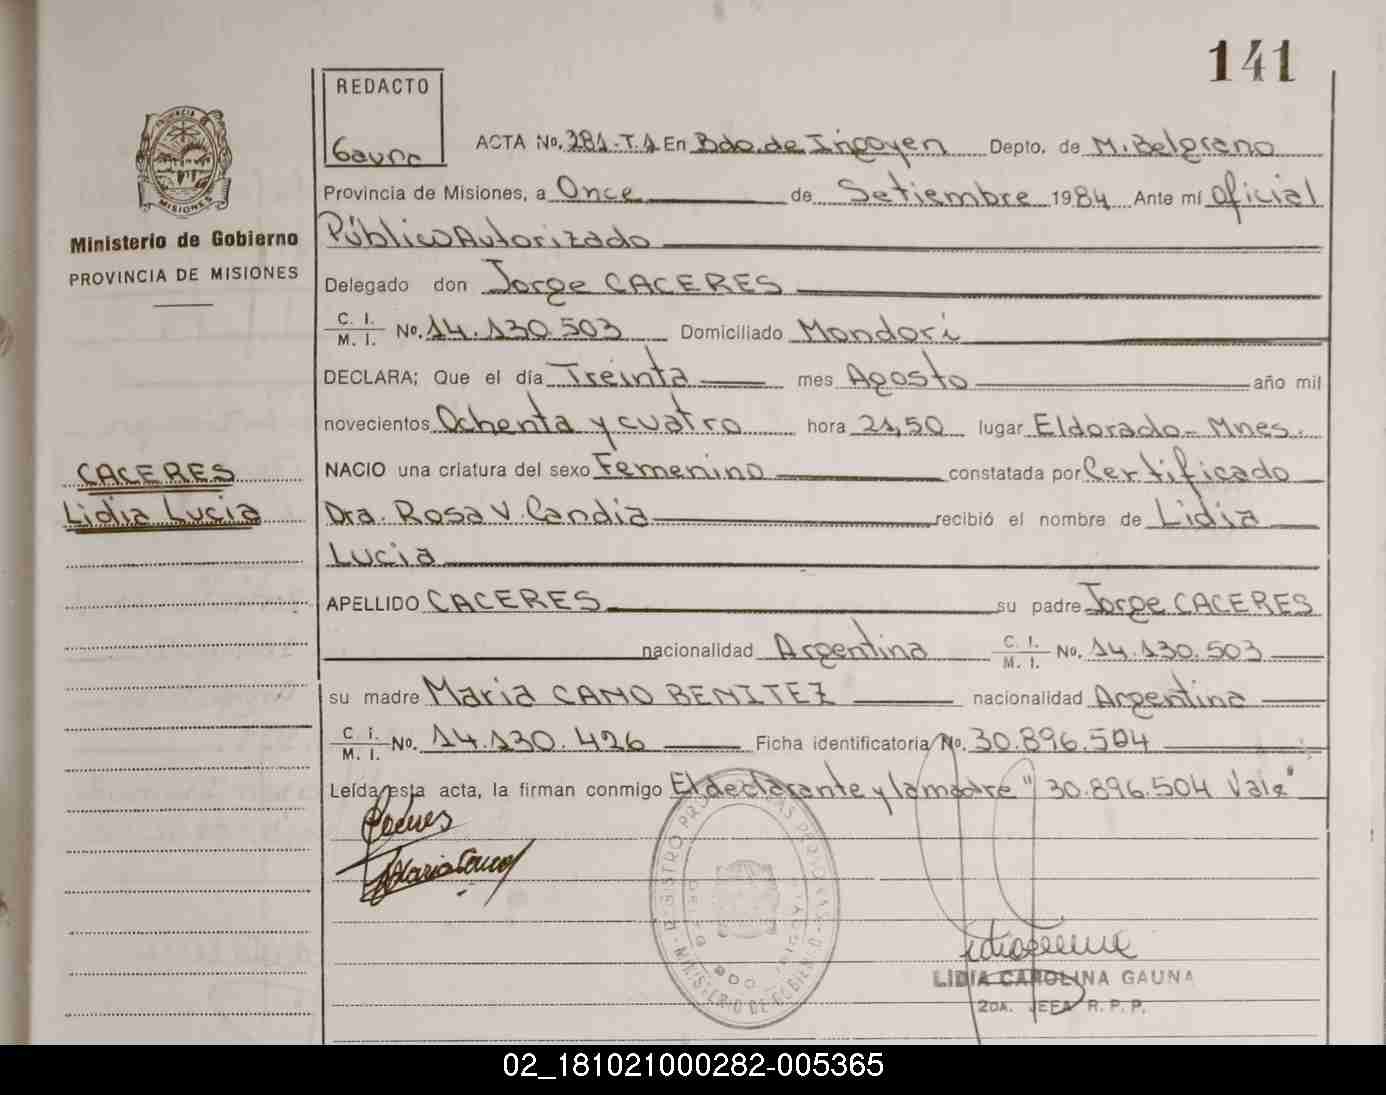 141
REDACTO
Gauna
ACTA No. 281-T.1 En Bdo. de Irigoyen Depto. de M. Belgrano
Provincia de Misiones, a Once de Setiembre 1984 Ante mí Oficial
Público Autorizado
Delegado don Jorge CACERES
C. I.
M. I. No. 14.130.503 Domiciliado Mondori
DECLARA; Que el día Treinta mes Agosto año mil
novecientos Ochenta y cuatro hora 21,50 lugar Eldorado - Mnes.
NACIO una criatura del sexo Femenino constatada por Certificado
Dra. Rosa V. Candia recibió el nombre de Lidia
Lucia
APELLIDO CACERES su padre Jorge CACERES
nacionalidad Argentina C. I.
M. I. No. 14.130.503
su madre Maria CANO BENITEZ nacionalidad Argentina
C. I.
M. I. No. 14.130.426 Ficha identificatoria No. 30.896.504
Leída esta acta, la firman conmigo El declarante y la madre "30.896.504 Vale"
LIDIA CAROLINA GAUNA
2DA. JEFA R. P. P.
PROVINCIA
MISIONES
Ministerio de Gobierno
PROVINCIA DE MISIONES
CACERES
Lidia Lucia
02_181021000282-005365